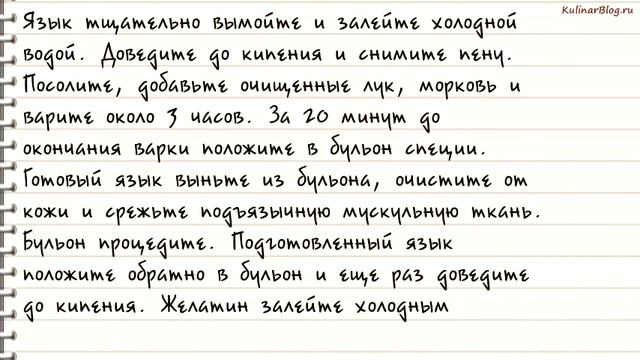 KulinarBlog.ru
Язык тщательно вымойте и залейте холодной
водой. Доведите до кипения и снимите пену.
Посолите, добавьте очищенные лук, морковь и
варите около 3 часов. За 20 минут до
окончания варки положите в бульон специи.
Готовый язык выньте из бульона, очистите от
кожи и срежьте подъязычную мускульную ткань.
Бульон процедите. Подготовленный язык
положите обратно в бульон и еще раз доведите
до кипения. Желатин залейте холодным